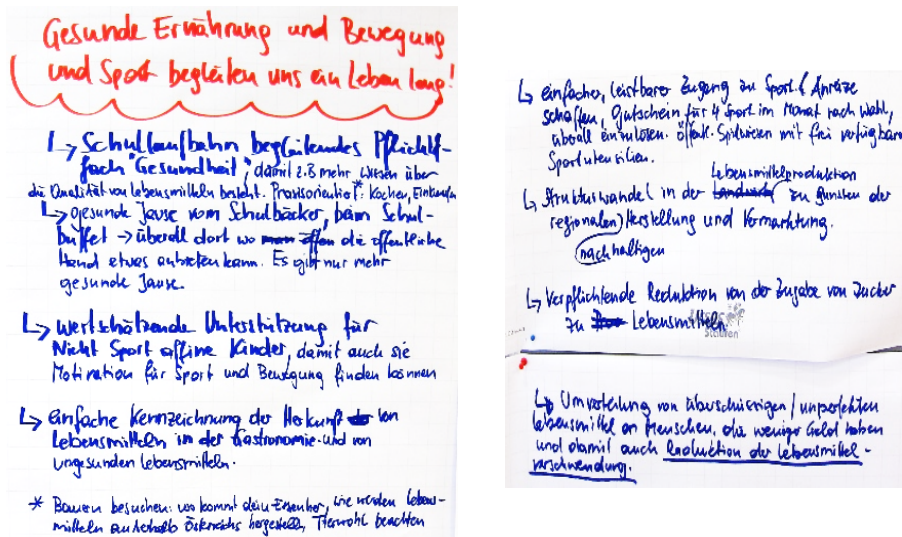 Gesunde Ernährung und Bewegung
und Sport begleiten uns ein Leben lang!
↳ Schullaufbahn begleitendes Pflicht-
fach "Gesundheit", damit z.B mehr Wissen über
die Qualität von Lebensmitteln besteht. Praxisorientiert*: Kochen, Einkaufen
↳ gesunde Jause vom Schulbäcker, beim Schul-
buffet → überall dort wo die öffentliche
Hand etwas anbieten kann. Es gibt nur mehr
gesunde Jause.
↳ wertschätzende Unterstützung für
Nicht Sport affine Kinder, damit auch sie
Motivation für Sport und Bewegung finden können
↳ einfache Kennzeichnung der Herkunft von
Lebensmitteln in der Gastronomie und von
ungesunden Lebensmitteln.
* Bauern besuchen: wo kommt dein Essen her, wie werden Lebens-
mitteln außerhalb Österreichs hergestellt, Tierwohl beachten
↳ einfacher, leistbarer Zugang zu Sport / Anreize
schaffen, Gutschein für 4 Sport im Monat nach Wahl,
überall einzulösen. öffentl. Spielwiesen mit frei verfügbaren
Sportutensilien.
Lebensmittelproduktion
↳ Strukturwandel in der zu Gunsten der
regionalen Herstellung und Vermarktung.
nachhaltigen
↳ Verpflichtende Reduktion von der Zugabe von Zucker
zu Lebensmitteln
↳ Umverteilung von überschüssigen / unperfekten
Lebensmittel an Menschen, die weniger Geld haben
und damit auch Reduktion der Lebensmittel-
verschwendung.